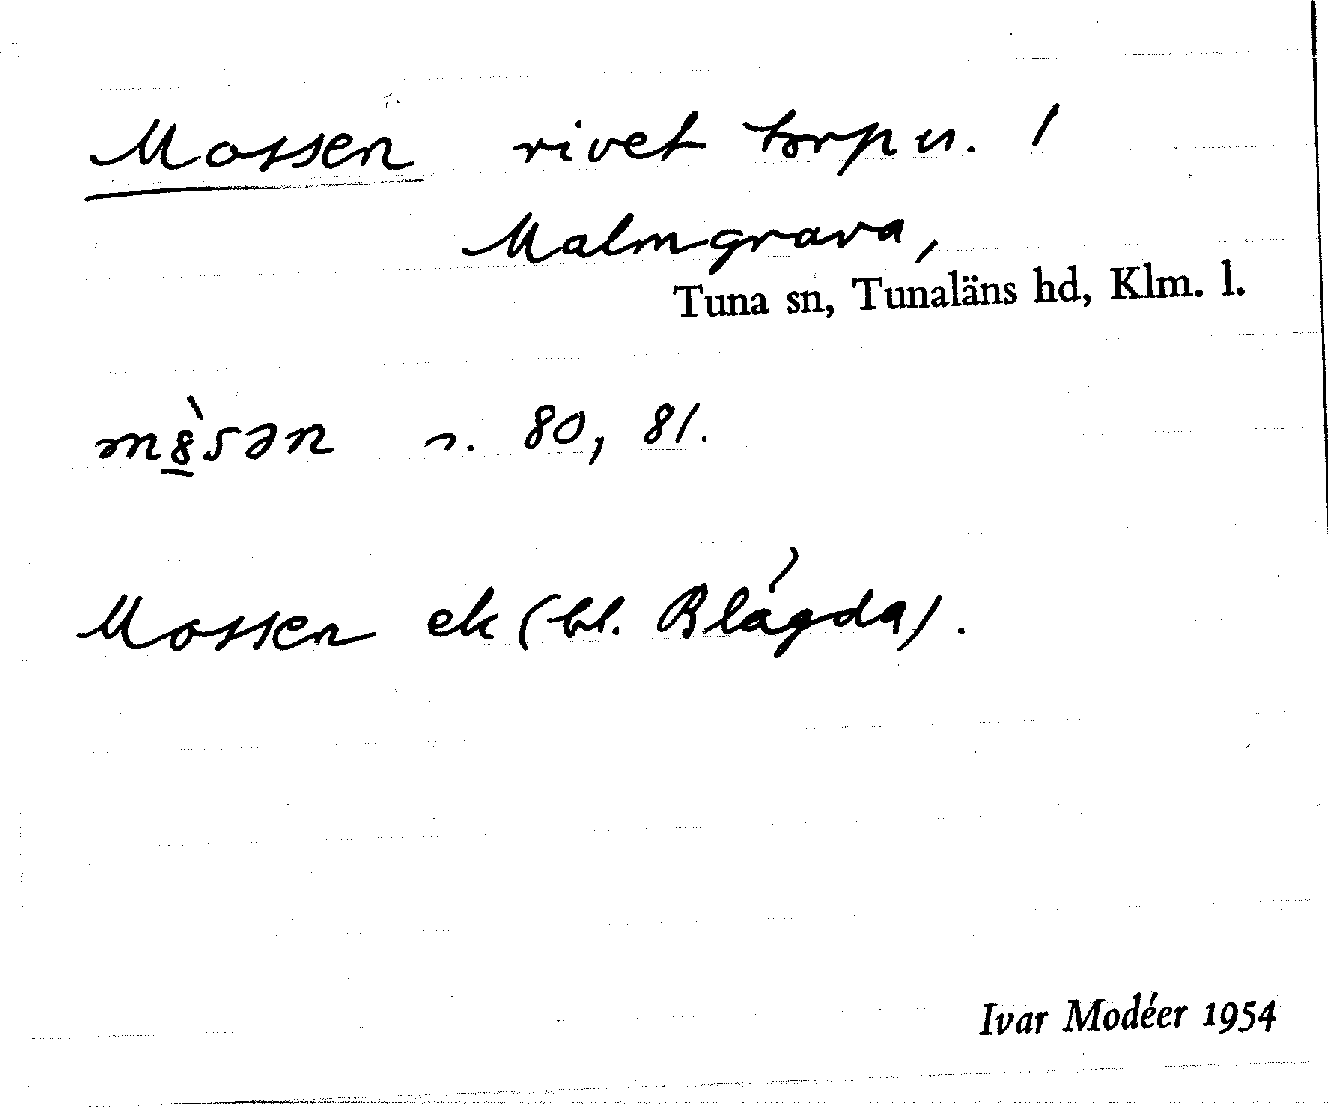 Mossen rivet torp u. /
Malmgrava,
Tuna sn, Tunaläns hd, Klm. l.
m8̠̀sən n. 80, 81.
Mossen ek (bl. Blågda).
Ivar Modéer 1954